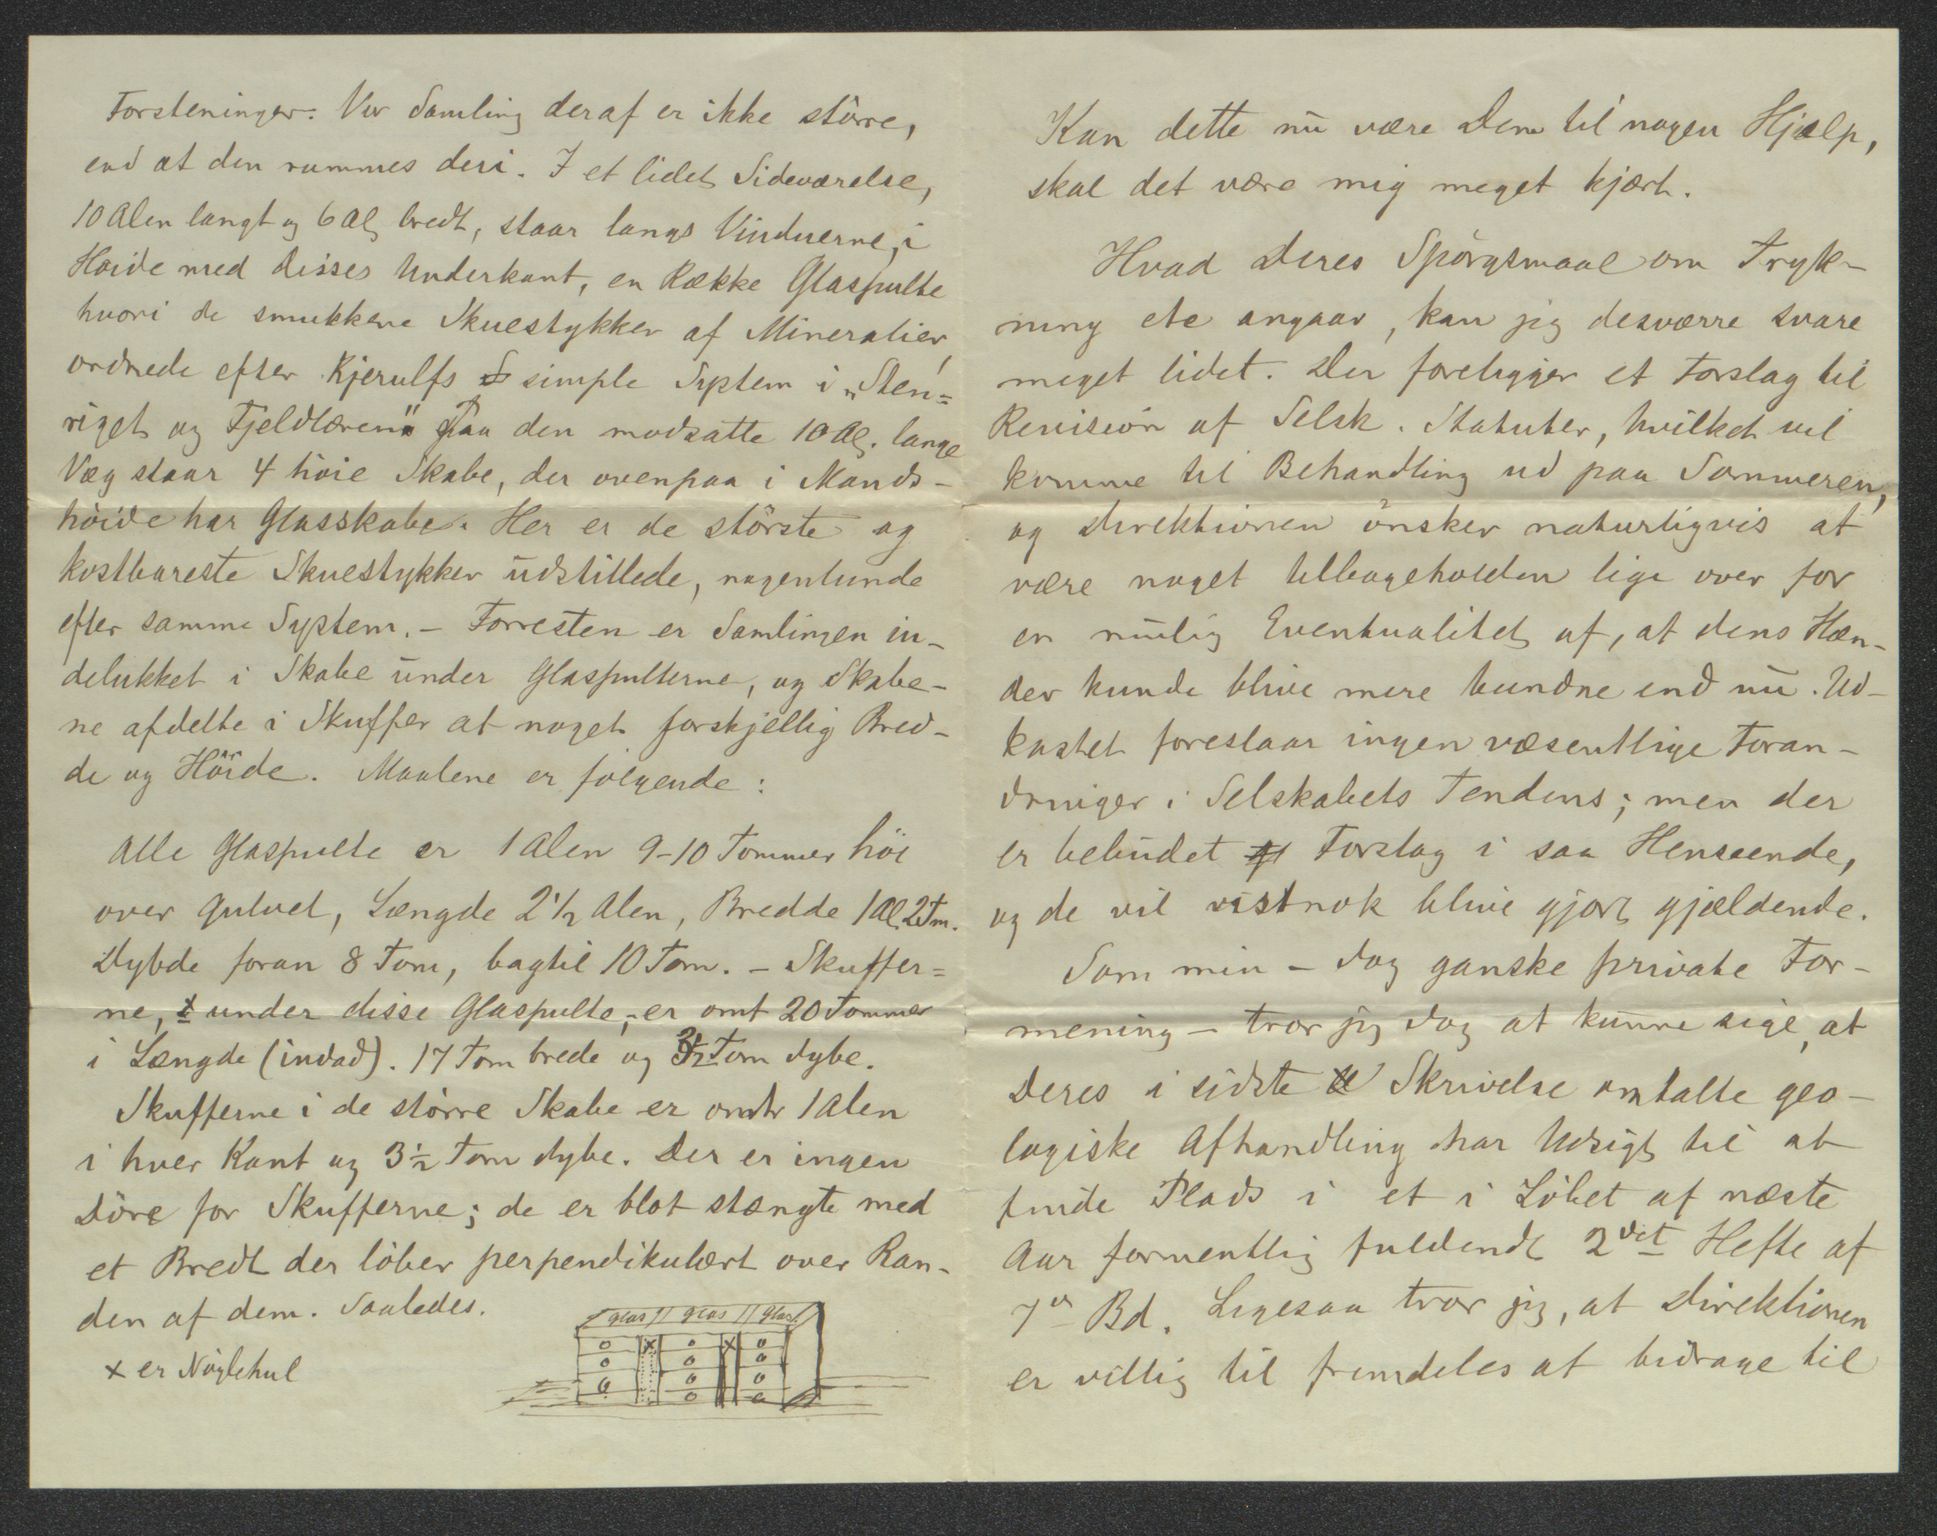 Forsteninger. Vor Samling deraf er ikke större,
end at den rummes deri. I et lidet Sideværelse,
10 Alen langt og 6 Al. bredt, staar langs Vinduerne, i
Høide med disses Underkant, en Række Glaspulte
hvori de smukkere Skuestykker af Mineralier,
ordnede efter Kjerulfs simple System i „Sten=
riget og Fjeldlæren“. Paa den modsatte 10 Al. lange
Væg staar 4 höie Skabe, der ovenpaa i Mands-
höide har Glasskabe. Her er de störste og
kostbareste Skuestykker udstillede, nogenlunde
efter samme System. – Forresten er Samlingen in-
delukket i Skabe under Glaspulterne, og Skabe-
ne afdelte i Skuffer at noget forskjellig Bred-
de og Höide. Maalene er følgende:
Alle Glaspulte er 1 Alen 9–10 Tommer höi
over Gulvet, Længde 2 1/2 Alen, Bredde 1 Al. 2 Tm.
Dybde foran 8 Tom, bagtil 10 Tom. – Skuffer=
ne, under disse Glaspulte, er omt 20 Tommer
i Længde (indad). 17 Tom brede og 3 1/2 Tom dybe.
Skufferne i de större Skabe er omtr 1 Alen
i hver Kant og 3 1/2 Tom dybe. Der er ingen
Döre for Skufferne; de er blot stængte med
et Bredt der löber perpendikulært over Ran-
den af dem. Saaledes.
glas glas glas
x x
x er Nöglehul
Kan dette nu være Dem til nogen Hjælp,
skal det være mig meget kjært.
Hvad Deres Spörgsmaal om Tryk-
ning etc angaar, kan jeg desværre svare
meget lidet. Der foreligger et Forslag til
Revision af Selsk. Statuter, hvilket vil
komme til Behandling ud paa Sommeren,
og Direktionen önsker naturligvis at
være noget tilbageholden lige over for
en mulig Eventualitet af, at dens Hæn-
der kunde blive mere bundne end nu. Ud-
kastet foreslaar ingen væsentlige Foran-
dringer i Selskabets Tendens; men der
er bebudet Forslag i saa Henseende,
og de vil vistnok blive gjort gjældende.
Som min – dog ganske private For-
mening – tror jeg dog at kunne sige, at
Deres i sidste Skrivelse omtalte geo-
logiske Afhandling har Udsigt til at
finde Plads i et i Löbet af næste
Aar formentlig fuldendt 2det Hefte af
7de Bd. Ligesaa tror jeg, at Direktionen
er villig til fremdeles at bidrage til